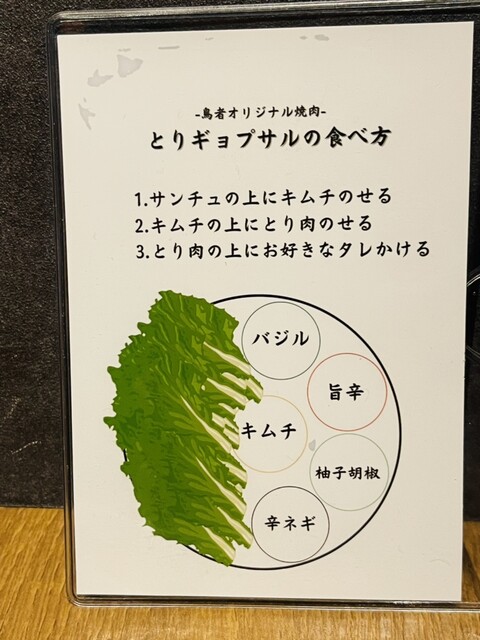 -鳥者オリジナル焼肉-
とりギョプサルの食べ方
1.サンチュの上にキムチのせる
2.キムチの上にとり肉のせる
3.とり肉の上にお好きなタレかける
バジル
旨辛
キムチ
柚子胡椒
辛ネギ